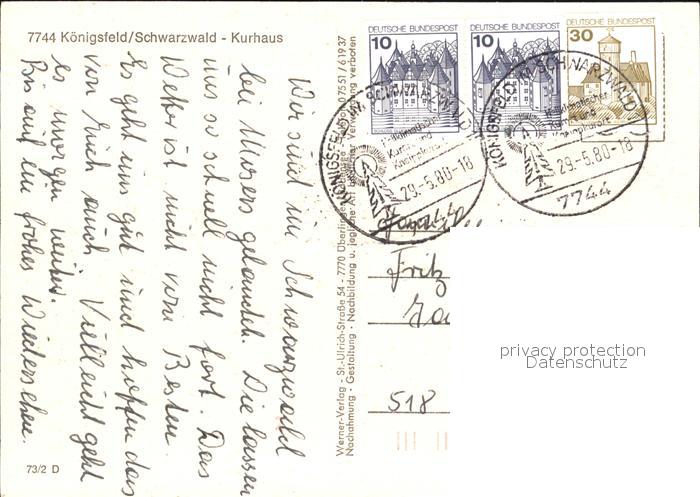 7744 Königsfeld/Schwarzwald - Kurhaus
Wir sind im Schwarzwald
bei Mosers gelandet. Die lassen
uns so schnell nicht fort. Das
Wetter ist nicht vom Besten.
Es geht uns gut und hoffen das
von Euch auch. Vielleicht geht
es morgen weiter.
Bis auf ein frohes Wiedersehen.
73/2 D
Werner-Verlag - St.-Ulrich-Straße 54 - 7770 Überlingen
Nachahmung · Gestaltung · Nachbildung u. jegliche Art verboten
07551/61937
DEUTSCHE BUNDESPOST
10
DEUTSCHE BUNDESPOST
10
DEUTSCHE BUNDESPOST
30
KÖNIGSFELD I. SCHWARZWALD
Heilklimatischer
Kurort und
Kneippkurort
29.-5.80-18
KÖNIGSFELD I. SCHWARZWALD
Heilklimatischer
Kurort und
Kneippkurort
29.-5.80-18
7744
Fritz
518
privacy protection
Datenschutz